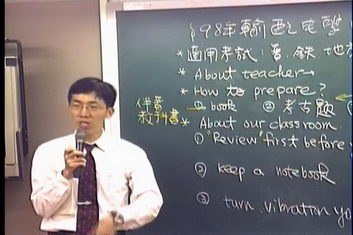 §98年輸配電學
* 適用考試：普.鐵 地方
* About teacher
* How to prepare?
① book ② 考古題
伴書
教科書
* About our classroom
① "Review" first before
② keep a notebook
③ turn vibration yo